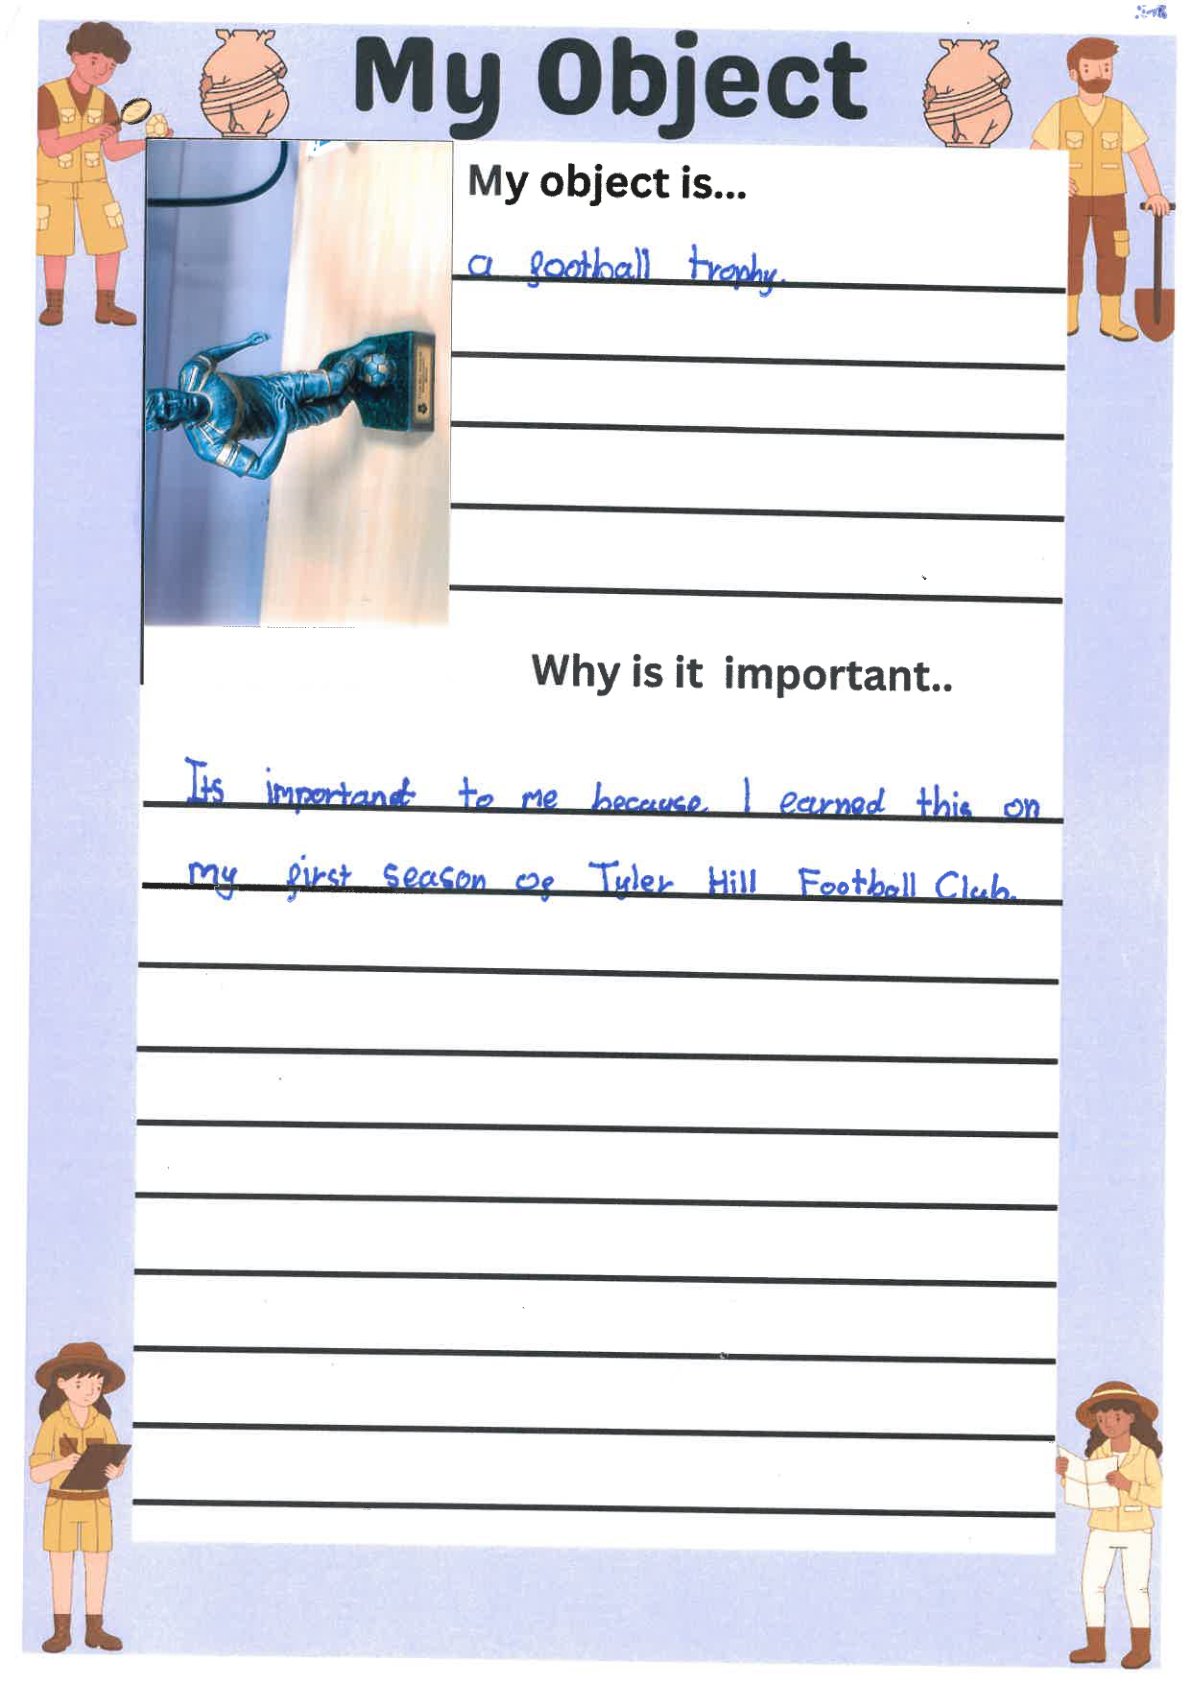 My Object
My object is...
a football trophy.
Why is it important..
Its important to me because I earned this on
my first season of Tyler Hill Football Club.